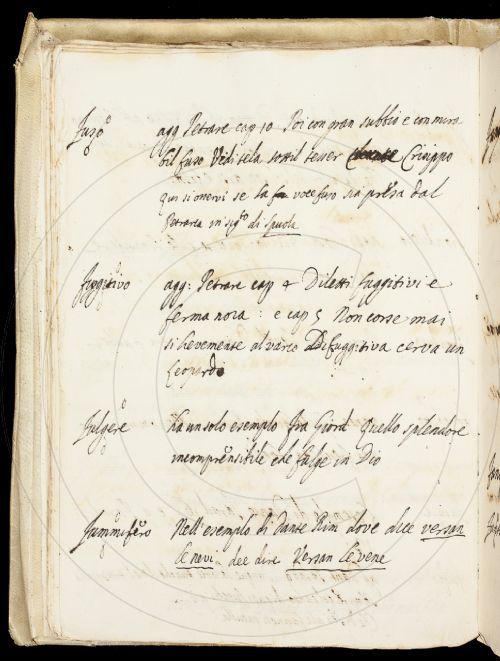 Fuso agg Petrarc cap 10 Poi con gran subbio e con mira
bil fuso Vidi tela sottil tesser Crisippo
qui si osservi se la voce fuso sia presa dal
Petrarca in sig.to di Spuola
Fuggitivo agg: Petrarc cap 4 Diletti fuggitivi e
ferma noia : e cap 5 Non corse mai
si lievemente al varco Di fuggitiva cerva un
Leopardo
Fulgere ha un solo esempio Fra Giord Quello splendore
incomprensibile che fulge in Dio
Fummifero Nell'esempio di Dante Rim dove dice versan
le nevi dee dire Versan le vene